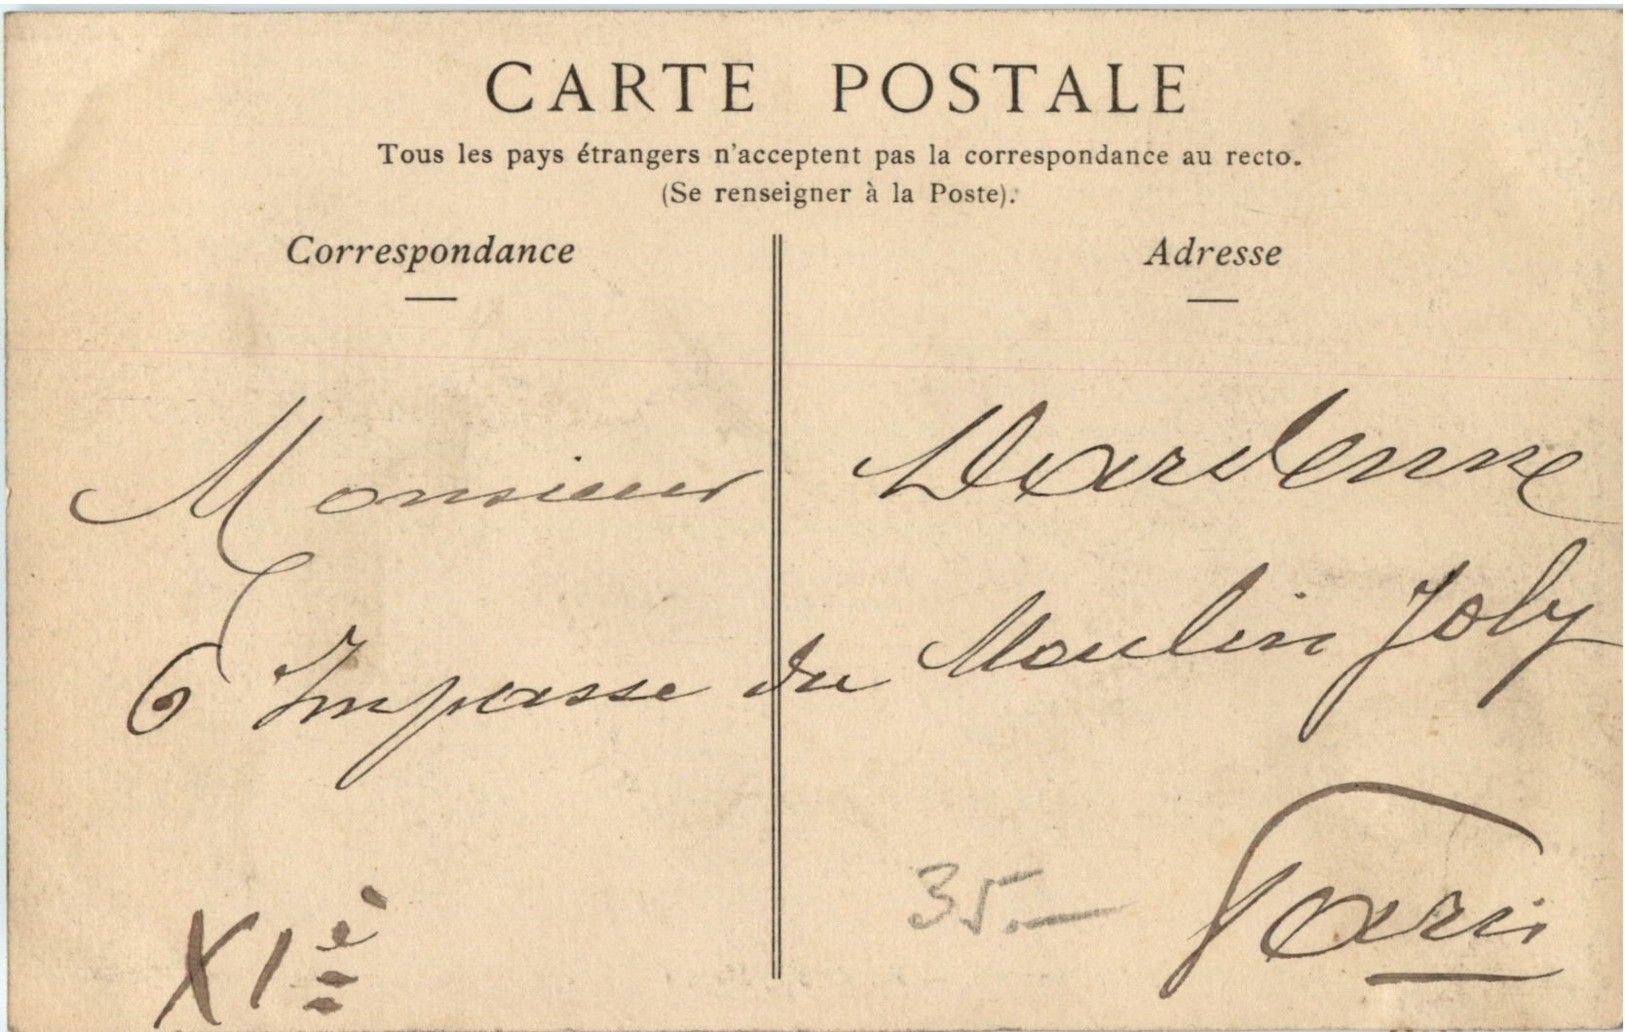 CARTE POSTALE
Tous les pays étrangers n'acceptent pas la correspondance au recto.
(Se renseigner à la Poste).
Correspondance
Adresse
Monsieur Dardenne
6 Impasse du Moulin Joly
Paris
35.—
XIè